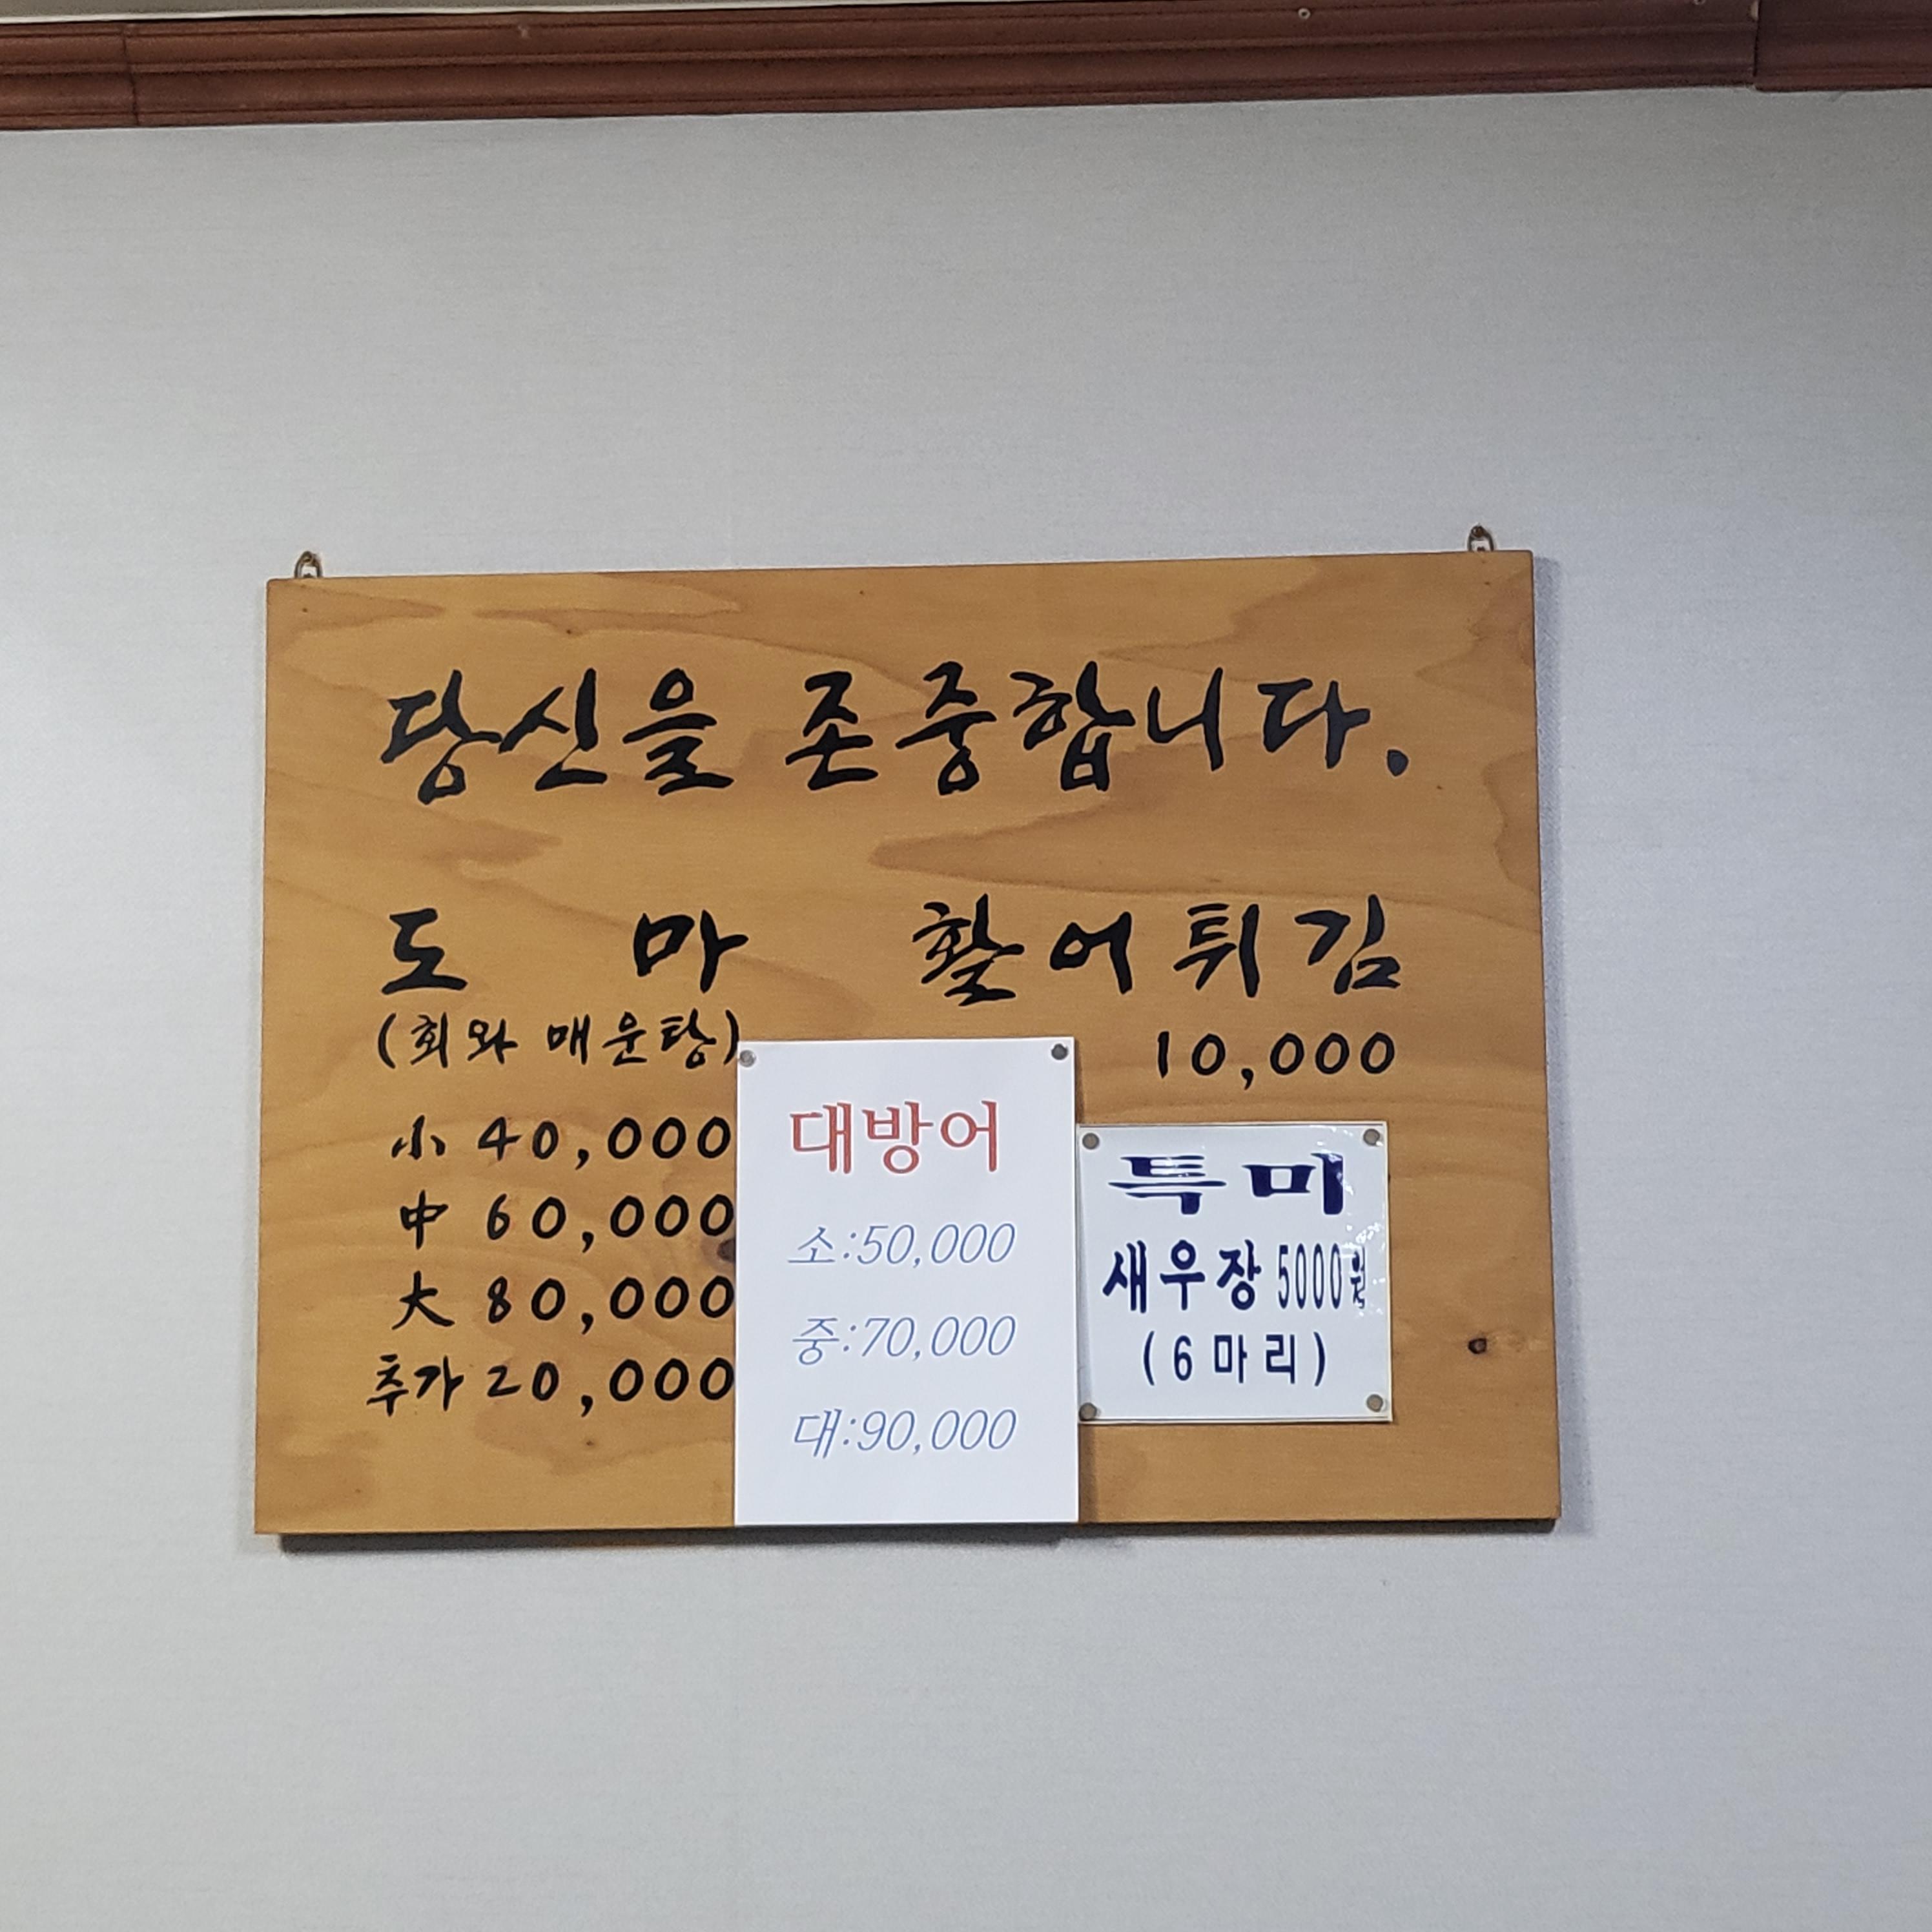 당신을 존중합니다.
도 마
(회와 매운탕)
小 40,000
中 60,000
大 80,000
추가 20,000
활어튀김
10,000
대방어
소:50,000
중:70,000
대:90,000
특미
새우장 5000원
(6마리)